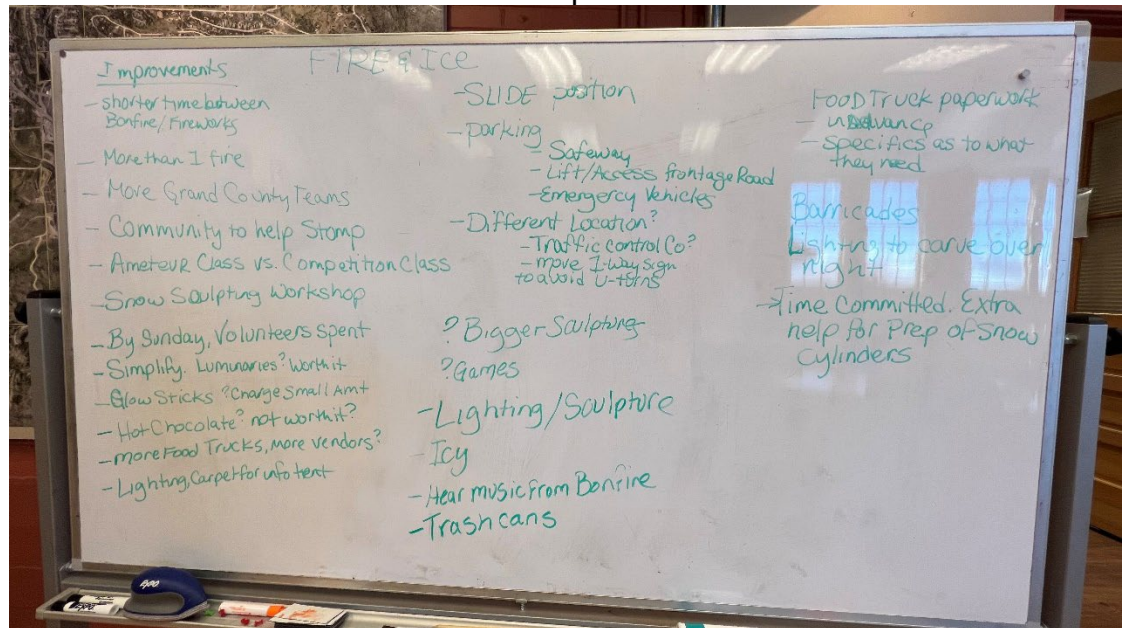 FIRE & ICE
Improvements
- shorter time between
Bonfire/Fireworks
- More than 1 fire
- More Grand County Teams
- Community to help Stomp
- Ameteur Class vs. Competition Class
- Snow Sculpting Workshop
- By Sunday, Volunteers Spent
- Simplify. Luminaries? Worth it
- Glow Sticks ? Charge Small Amt
- Hot Chocolate? not worth it?
- more Food Trucks, More vendors?
- Lighting, Carpet for info tent
- SLIDE position
- parking
- Safeway
- Lift/Access frontage Road
- Emergency Vehicles
- Different Location?
- Traffic control Co?
- move 1-way sign
to avoid U-turns
? Bigger Sculptures
? Games
- Lighting/Sculpture
- Icy
- Hear music from Bonfire
- Trash cans
Food Truck paperwork
- advance
- Specifics as to what
they need
Barricades
Lighting to carve over
night
→ Time Committed. Extra
help for Prep of Snow
Cylinders
EXPO